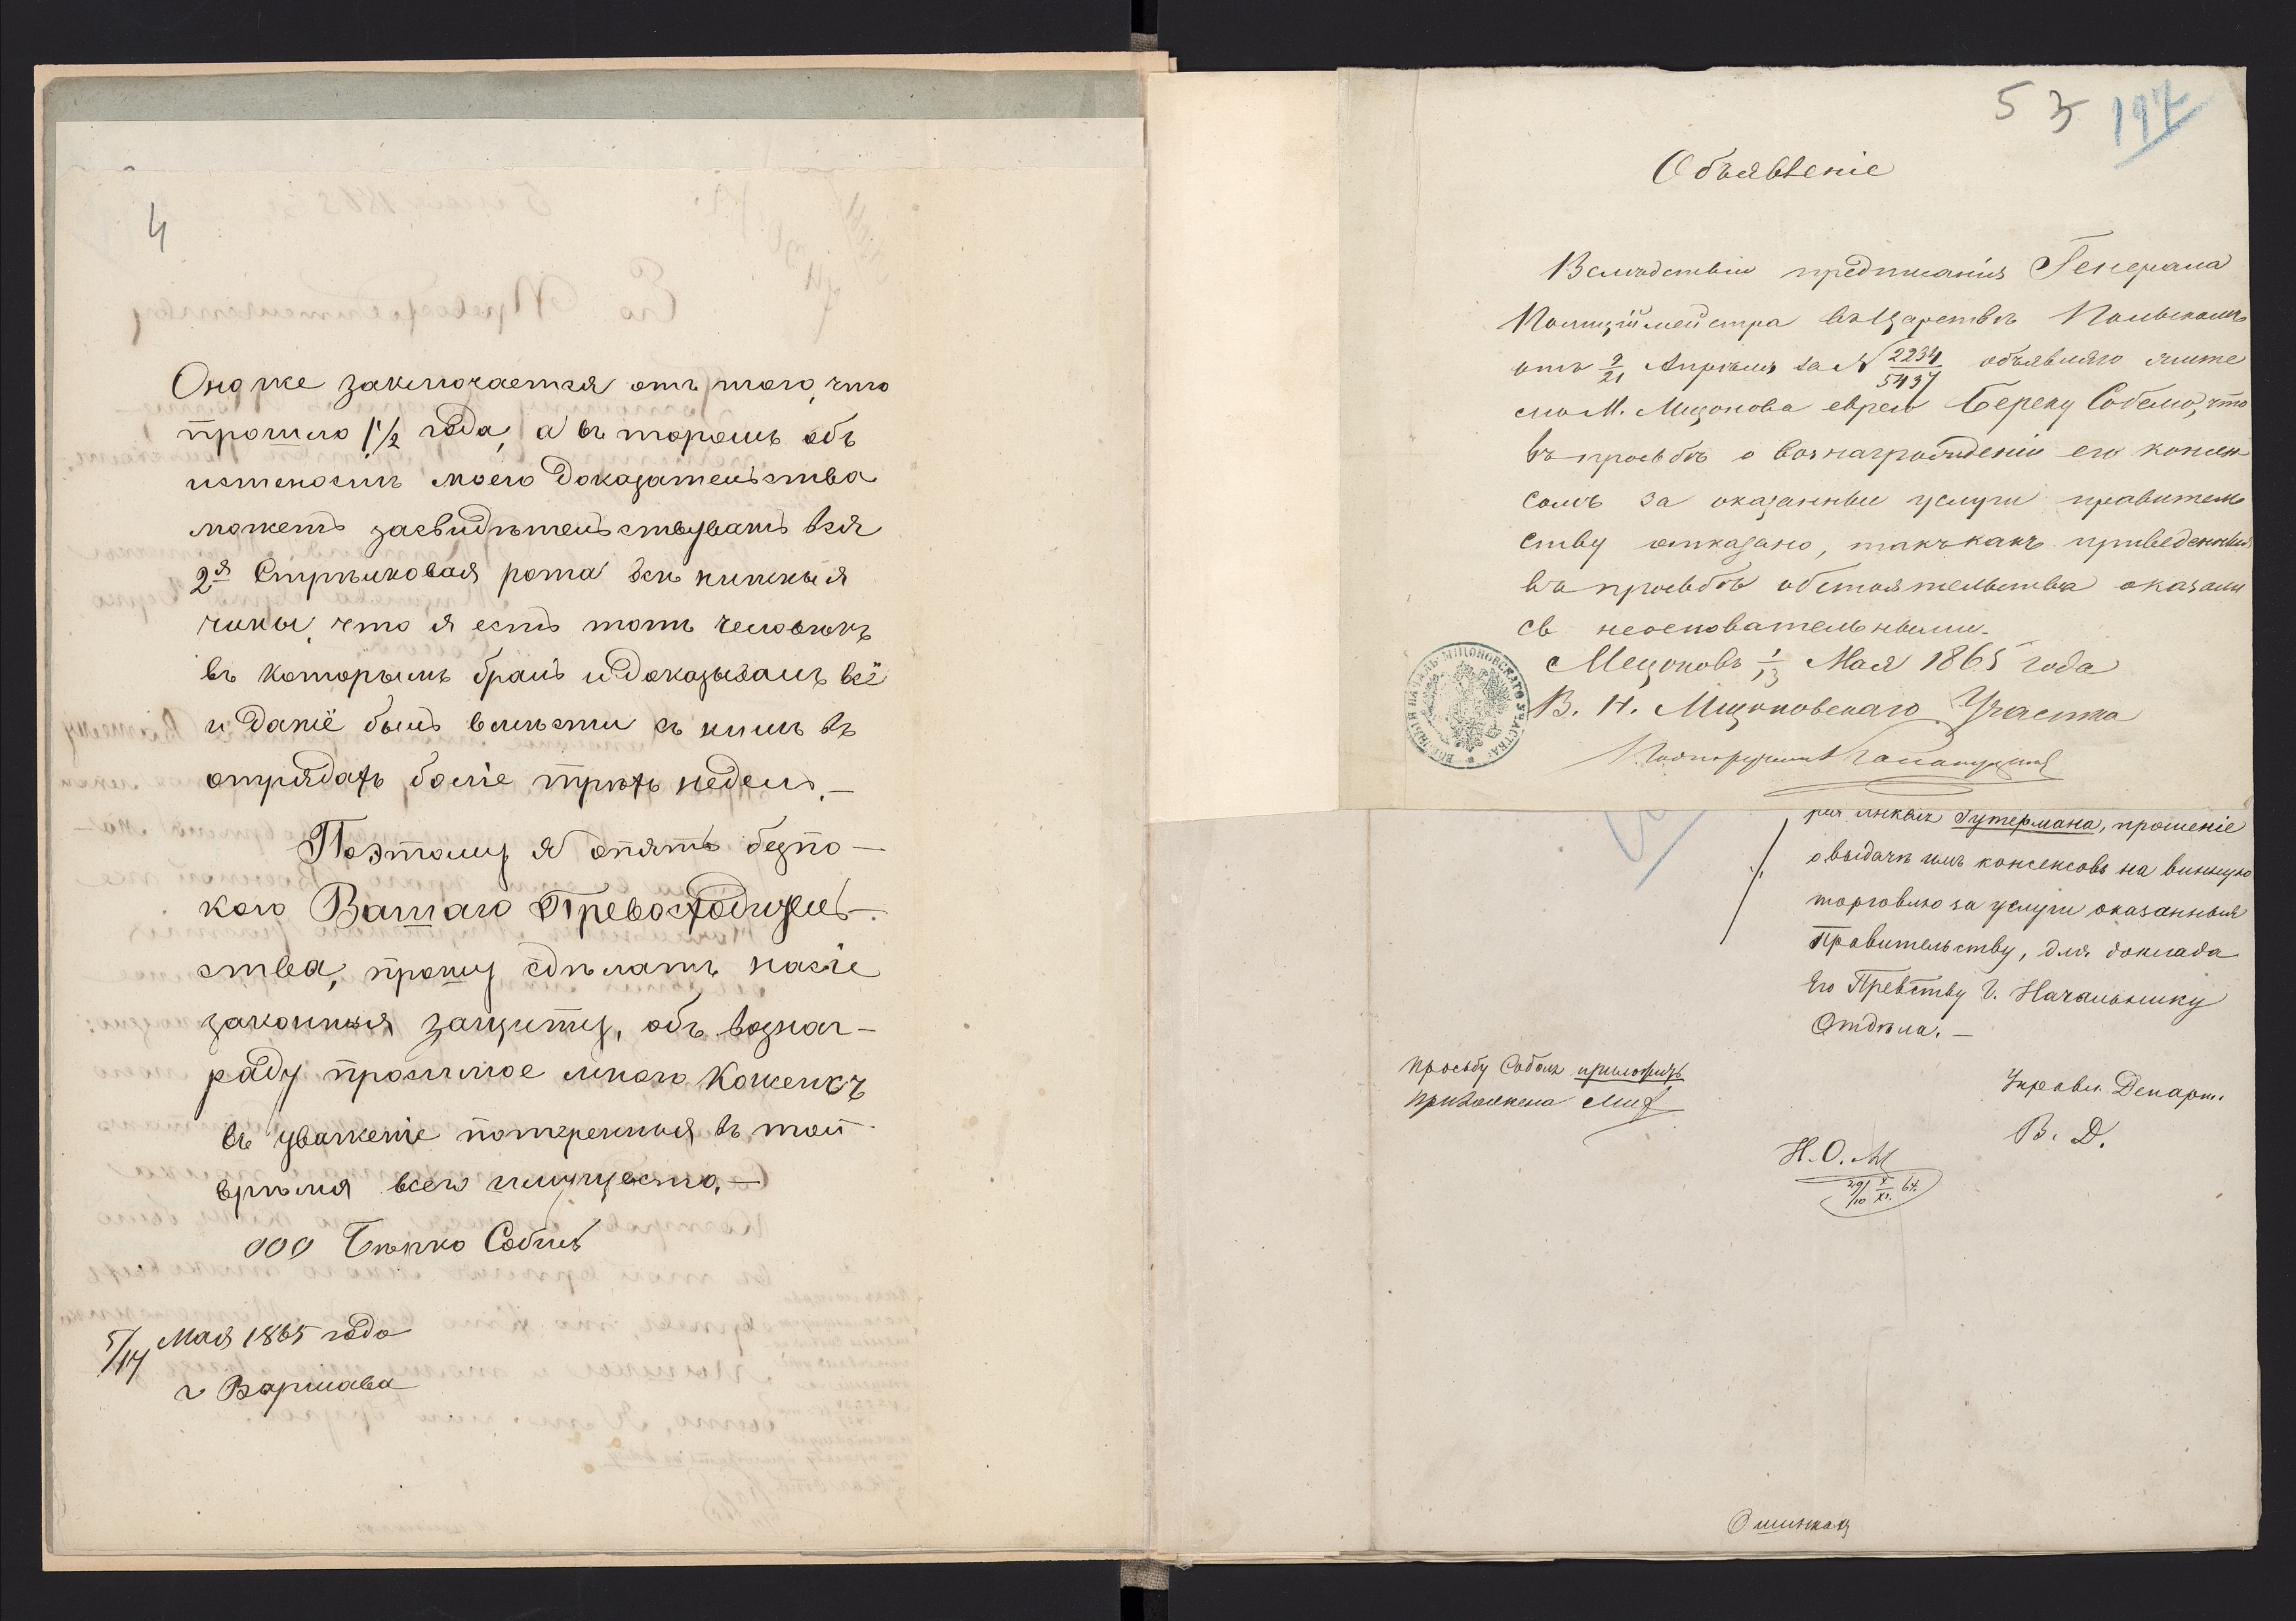 4
Оно же заключается отъ того, что
прошло 1 1/2 года, а въ торомъ объ
истеносимъ моего доказательства
можетъ засвидѣтельствувать вся
2я Стрѣлковая рота всѣ нижныя
чины, что я есть тотъ человѣкъ
въ которымъ бралъ и доказывалъ всё
и даже былъ вмѣсти съ нимъ въ
отрядахъ боліе трехъ недель.—
Поэтому я опять безпо-
кою Вашаго Превосходитель-
ства, прошу сдѣлать насіе
законныя защиту, объ вознаг-
раду прошлое много Коженкъ
въ уваженіе потеренныя въ той
время всего имущество.—
000 Бѣрко Собель
5/17 Мая 1865 года
г Варшава
53 197
Объявленіе
Вслѣдствіи предписанія Генерала
Полиціймейстра въ Царствѣ Польскомъ
отъ 9/21 Апрѣля за N 2234/5437 объявляю жите
лю М. Мщонова еврею Береку Собелю, что
въ просьбѣ о вознагражденіи его консен
сомъ за оказанные услуги правитель
ству отказано, такъ какъ приведенныя
въ просьбѣ обстоятельства оказали
сь неосновательными.
Мщоновъ 1/13 Мая 1865 года
В. Н. Мщоновскаго Участка
Подпоручикъ
ВОЕННЫЙ НАЧАЛЬ. МЩОНОВСКАГО УЧАСТКА
Гутермана, прошеніе
о выдачѣ имъ консенсовъ на винную
торговлю за услуги оказанныя
Правительству, для доклада
Его Превству Г. Начальнику
Отдѣла.—
просьбу Собеля приложить
Приложена
Управл. Департ.
В. Д.
Н. О. М
29/10 X/XI 64.